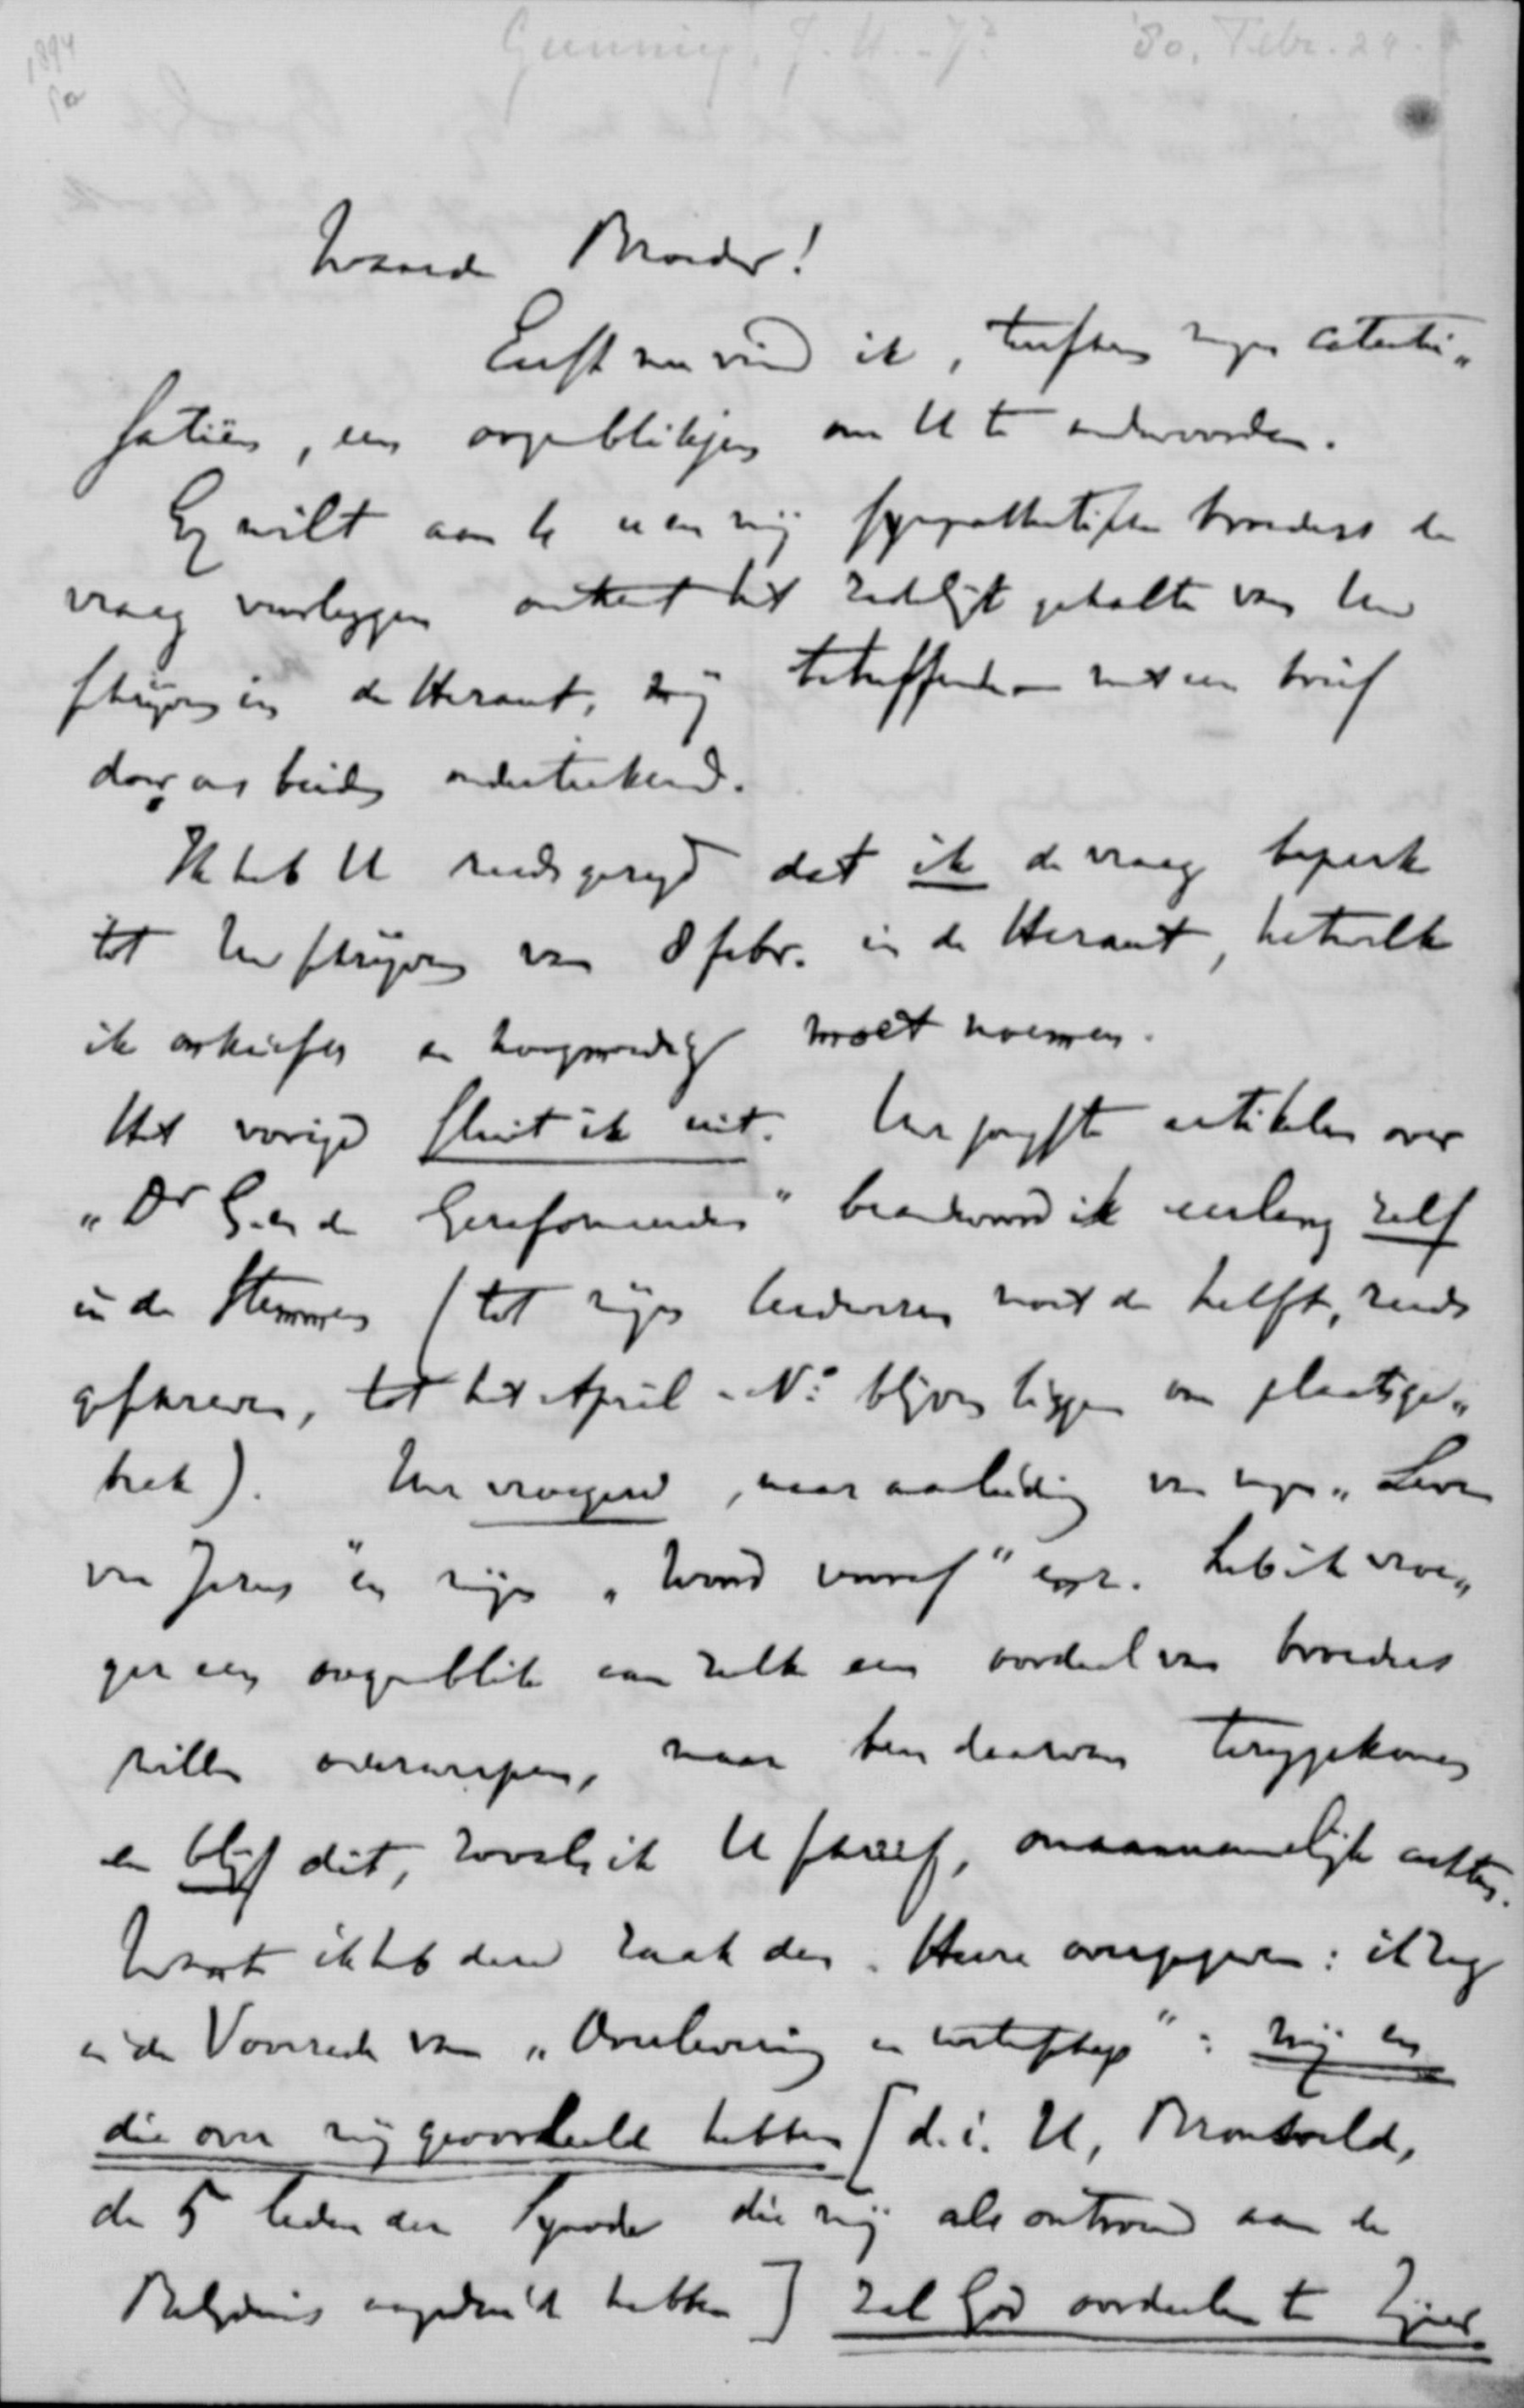 1894
Gunning, J. H. Jr 80. Febr. 24.
Waarde Broeder!
Eerst nu vind ik, tusschen mijn catechi„
satiën, een oogenblikjen om U te andwoorden.
Gij wilt aan te u en mij sympathetische broeders de
vraag voorleggen omtrent het zedelijk gehalte van Uw
schrijven in de Heraut, mij betreffende — met een brief
door ons beide onderteekend.
Ik heb U reeds gezegd dat ik de vraag beperk
tot Uw schrijven van 8 febr. in de Heraut, hetwelk
ik onkiesch en hoogmoedig moet noemen.
Het vorige sluit ik uit. Uw jongste artikelen over
„Dr G. en de Gereformeerden" beandwoord ik eerlang zelf
in de Stemmen (tot mijn leedwezen moet de helft, reeds
geschreven, tot het April-No. blijven liggen om plaatsge„
brek). Uw vroegere, naar aanleiding van mijn „Leven
van Jezus" en mijn „Woord vooraf" enz. heb ik vroe„
ger een oogenblik aan zulk een oordeel van broeders
willen onderwerpen, maar ben daarvan teruggekomen
en blijf dit, zooals ik U schreef, onaannemelijk achten.
Want ik heb deze zaak den Heere overgegeven: ik zeg
in de Voorrede van „Overlevering en wetenschap": mij en
die over mij geoordeeld hebben [d.i. U, Bronsveld,
de 5 leden der Synode die mij als ontrouw aan de
Belijdenis aangeduid hebben] zal God oordeelen te Zijner